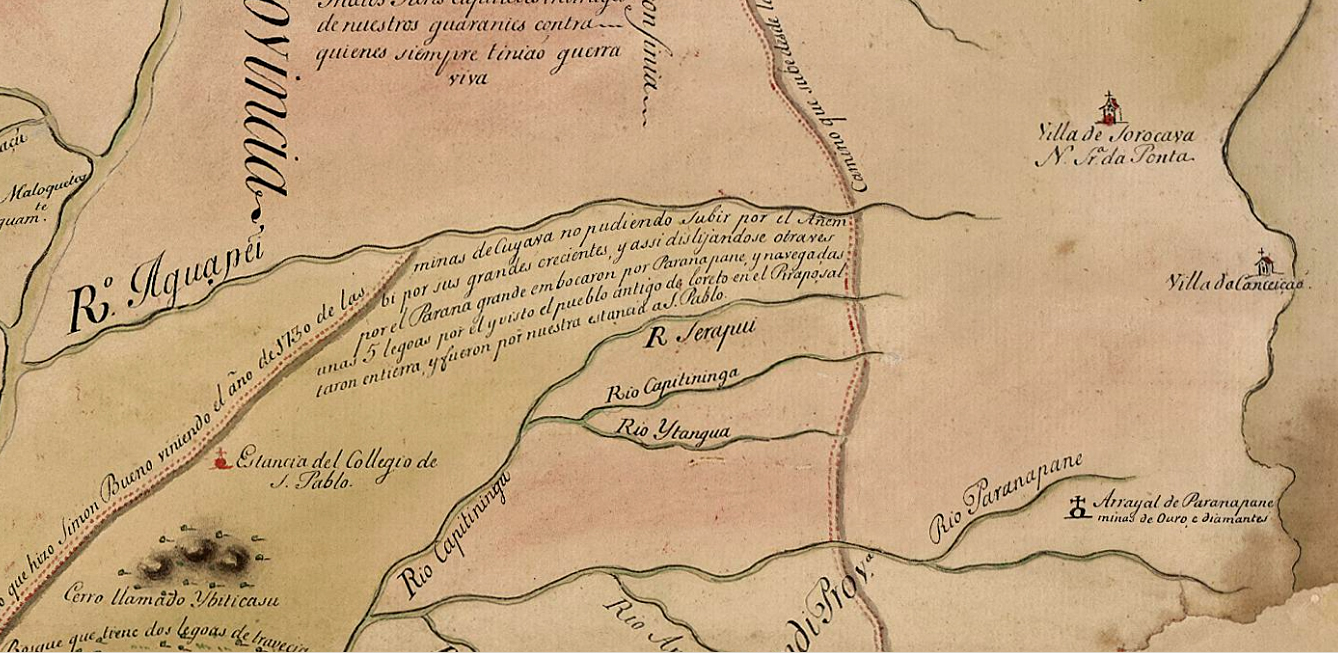 de nuestros guaranies contra
quienes siempre tiniaõ guerra
viva
ovincia
Camino que sube desde
Villa de Sorocava
N. Sra. da Ponta.
Villa da Conceiçaõ.
Maloqueta
te
quam.
Ro. Aguapeĩ
minas de Cuyava no pudiendo Subir por el Añem
bi por sus grandes crecientes, y assi dislijandose otra ves
por el Paraná grande embocaron por Paranapane, y navegadas
unas 5 legoas por el y visto el pueblo antigo de loreto en el Pirapo, sal
taron entierra, y fueron por nuestra estancia a S. Pablo.
que hizo Simon Bueno viniendo el año de 1730 de las
R Serapuĩ
Rio Capitininga
Rio Ytangua
Estancia del Collegio de
S. Pablo.
Rio Capitininga
Rio Paranapane
Arrayal de Paranapane
minas de Ouro, e diamantes
Cerro llamado Ybiticasu
Bosque que tiene dos legoas de travecia
Rio
Prova.